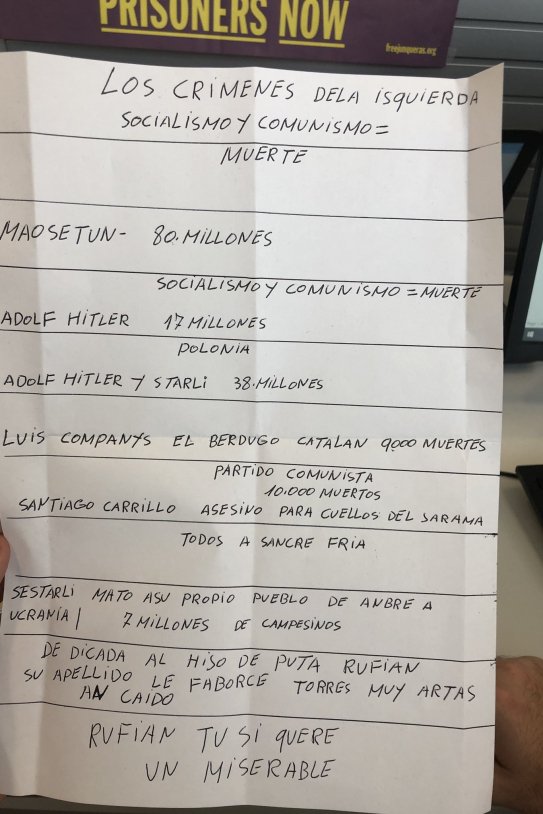 PRISONERS NOW
freejunqueras.org
LOS CRIMENES DELA iSQUIERDA
SOCIALISMO Y COMUNISMO =
MUERTE
MAOSETUN- 80.MILLONES
SOCIALISMO Y COMUNISMO = MUERTE
ADOLF HITLER 17 MILLONES
POLONIA
ADOLF HITLER Y STARLI 38.MILLONES
LUIS COMPANYS EL BERDUGO CATALAN 9000 MUERTES
PARTIDO COMUNISTA
10.000 MUERTOS
SANTIAGO CARRILLO ASESINO PARA CUELLOS DEL SARAMA
TODOS A SANCRE FRIA
SESTARLI MATO ASU PROPIO PUEBLO DE ANBRE A
UCRANIA | 7 MILLONES DE CAMPESINOS
DE DICADA AL HISO DE PUTA RUFIAN
SU APELLIDO LE FABORCE TORRES MUY ARTAS
AN CAIDO
RUFIAN TU SI QUERE
UN MISERABLE